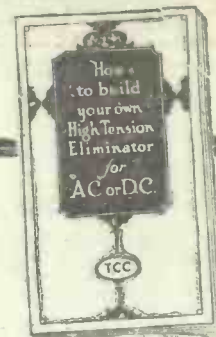 How
to build
your own
High Tension
Eliminator
for
AC or D.C.
TCC